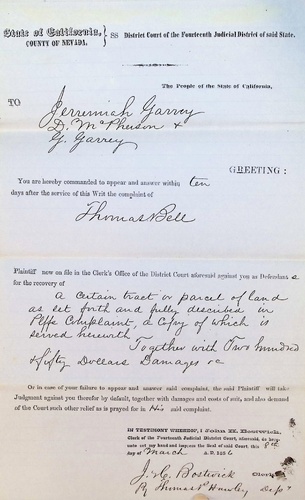 State of California, } ss District Court of the Fourteenth Judicial District of said State.
COUNTY OF NEVADA.
The People of the State of California,
TO
Jerremiah Garrey
D. McPherson &
G. Garrey
GREETING:
You are hereby commanded to appear and answer within ten
days after the service of this Writ the complaint of
Thomas Bell
Plaintiff now on file in the Clerk's Office of the District Court aforesaid against you as Defendants
for the recovery of
A certain tract or parcel of land
as set forth and fully described in
Plffs Complaint, a Copy of which is
served herewith
Together with Two hundred
& fifty Dollars Damages &c
Or in case of your failure to appear and answer said complaint, the said Plaintiff will take
Judgment against you therefor by default, together with damages and costs of suit, and also demand
of the Court such other relief as is prayed for in His said complaint.
IN TESTIMONY WHEREOF, I John H. Bostwick,
Clerk of the Fourteenth Judicial District Court, aforesaid, do hereunto
set my hand and impress the Seal of said Court this 8th
day of March A. D. 1856
J. H. C. Bostwick Clerk
By Thomas P. Hawley Dept